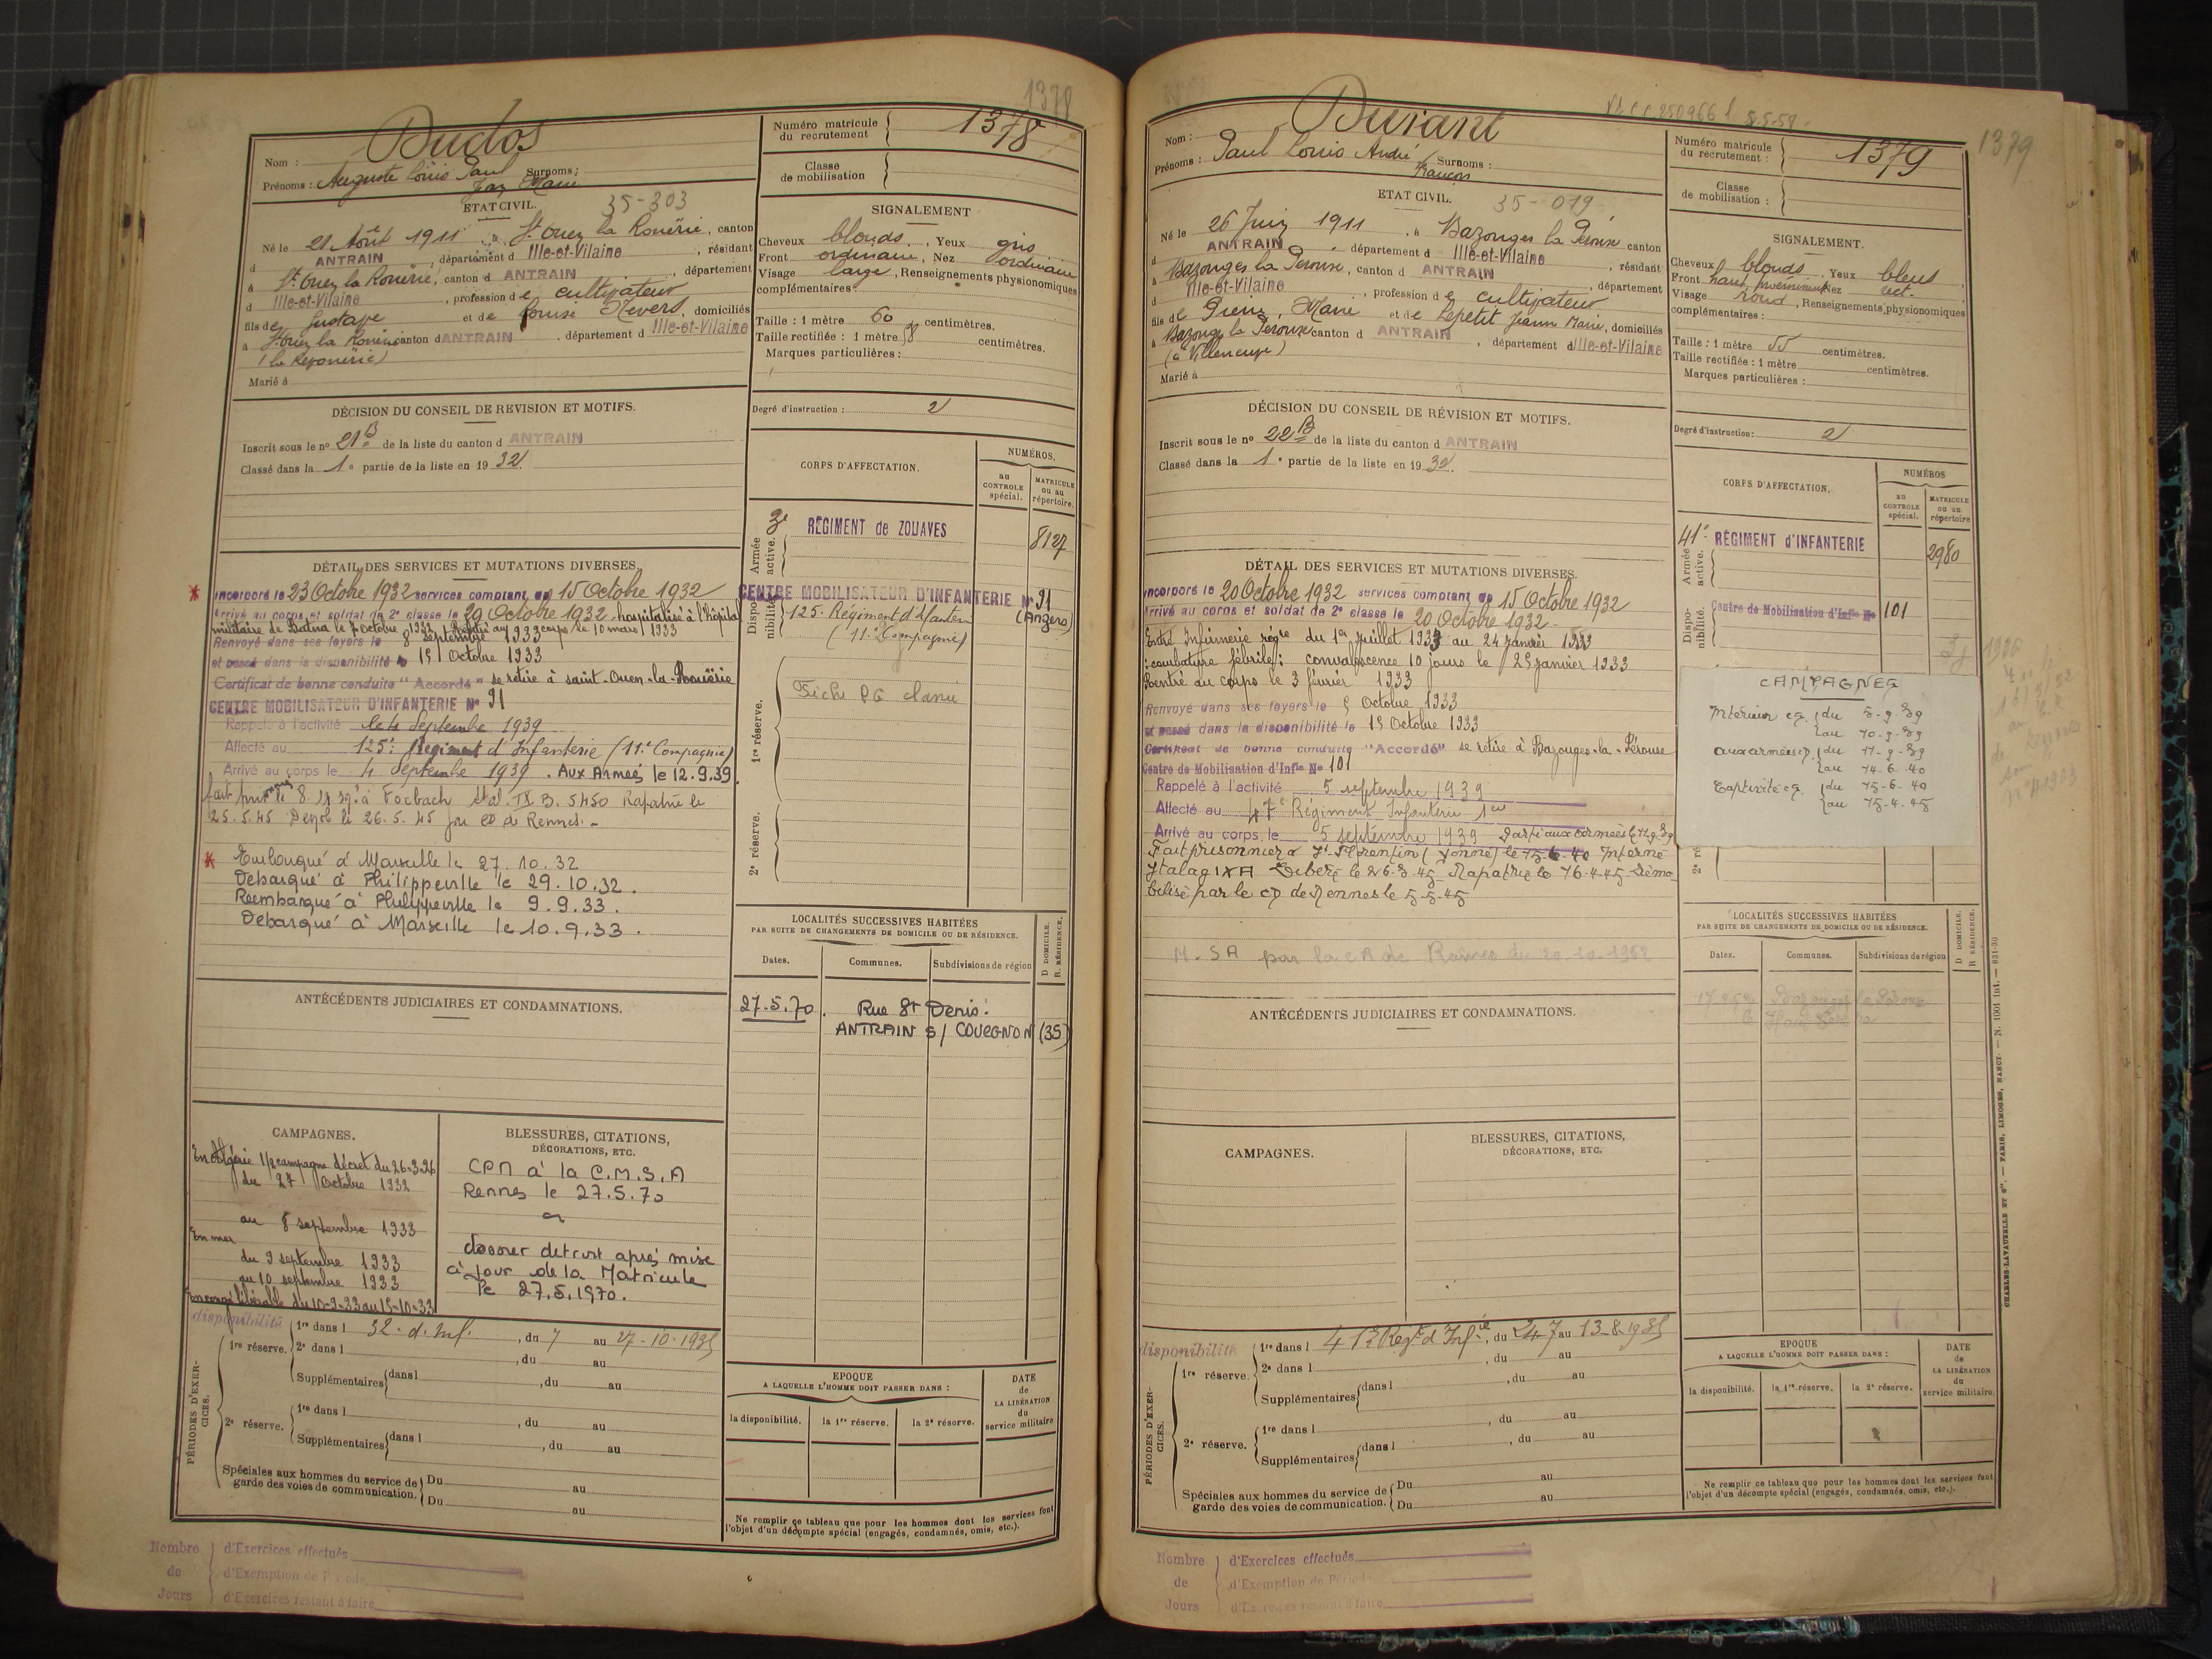 1378
Nom : Duclos
Prénoms : Auguste Louis Paul Surnoms :
Jean Marie
Numéro matricule du recrutement 1378
Classe de mobilisation
ETAT CIVIL. 35-303
Né le 21 Août 1911, à St Ouen la Rouërie, canton
d ANTRAIN, département d Ille-et-Vilaine, résidant
à St Ouen la Rouërie, canton d ANTRAIN, département
d Ille-et-Vilaine, profession de cultivateur
fils de Gustave et de Louise Hevers, domiciliés
à St Ouen la Rouërie canton d ANTRAIN, département d Ille-et-Vilaine
Marié à
SIGNALEMENT
Cheveux blonds, Yeux gris
Front ordinaire, Nez ordinaire
Visage large, Renseignements physionomiques
complémentaires :
Taille : 1 mètre 60 centimètres.
Taille rectifiée : 1 mètre 58 centimètres.
Marques particulières :
Degré d'instruction : 2
DÉCISION DU CONSEIL DE REVISION ET MOTIFS.
Inscrit sous le nº 21 B de la liste du canton d ANTRAIN
Classé dans la 1e partie de la liste en 1932.
CORPS D'AFFECTATION.
NUMÉROS.
au CONTROLE spécial.
MATRICULE ou au répertoire.
Armée active.
3e RÉGIMENT de ZOUAVES 8127
Disponibilité.
CENTRE MOBILISATEUR D'INFANTERIE Nº 91
125e Régiment d'Infanterie (Angers)
(11e Compagnie)
1re réserve.
Fiche PG classée
2e réserve.
DÉTAIL DES SERVICES ET MUTATIONS DIVERSES.
* Incorporé le 23 Octobre 1932 services comptant du 15 Octobre 1932
Arrivé au corps et soldat de 2e classe le 20 Octobre 1932. hospitalisé à l'hôpital
militaire de Batna le 7 octobre 1932 Rentré au corps le 10 mars 1933
Renvoyé dans ses foyers le 8 septembre 1933
et passé dans la disponibilité le 15 Octobre 1933
Certificat de bonne conduite "Accordé" se retire à Saint-Ouen-la-Rouërie
CENTRE MOBILISATEUR D'INFANTERIE Nº 91
Rappelé à l'activité le 4 Septembre 1939
Affecté au 125e Régiment d'Infanterie (11e Compagnie)
Arrivé au corps le 4 Septembre 1939. Aux Armées le 12.9.39.
à Focbach Stal. IX B. 5450 Rapatrié le
25.5.45 Démob le 26.5.45 par CD de Rennes. -
* Embarqué à Marseille le 27.10.32
Débarqué à Philippeville le 29.10.32.
Réembarqué à Philippeville le 9.9.33.
Débarqué à Marseille le 10.9.33.
LOCALITÉS SUCCESSIVES HABITÉES
PAR SUITE DE CHANGEMENTS DE DOMICILE OU DE RÉSIDENCE.
D DOMICILE. R. RÉSIDENCE.
Dates. Communes. Subdivisions de région
27.5.70. Rue St Denis.
ANTRAIN s/ COUESNON (35)
ANTÉCÉDENTS JUDICIAIRES ET CONDAMNATIONS.
CAMPAGNES.
En Algérie 1/2 campagne décret du 26-3-26
du 27 Octobre 1932
au 8 septembre 1933
En mer
du 9 septembre 1933
au 10 septembre 1933
En congé libérable du 10-9-33 au 15-10-33
BLESSURES, CITATIONS,
DÉCORATIONS, ETC.
CPM à la C.M.S.A
Rennes le 27.5.70
dossier detruit après mise
à jour de la Matricule
le 27.5.1970.
PÉRIODES D'EXERCICES.
disponibilité
1re réserve. 1re dans l 32e d. Inf., du 7 au 27-10-1935
2e dans l , du au
Supplémentaires dans l , du au
2e réserve. 1re dans l , du au
Supplémentaires dans l , du au
Spéciales aux hommes du service de garde des voies de communication. Du au
Du au
EPOQUE
A LAQUELLE L'HOMME DOIT PASSER DANS :
la disponibilité. la 1re réserve. la 2e réserve.
DATE de LA LIBÉRATION du service militaire
Ne remplir ce tableau que pour les hommes dont les services font
l'objet d'un décompte spécial (engagés, condamnés, omis, etc.).
Nombre de Jours
d'Exercices effectués
d'Exemption de Période
d'Exercices restant à faire
250966 8-5-58.
1379
Nom : Durant
Prénoms : Paul Louis André Surnoms :
François
Numéro matricule du recrutement : 1379
Classe de mobilisation :
ETAT CIVIL. 35-019
Né le 26 Juin 1911, à Bazouges la Pérouse canton
d ANTRAIN, département d Ille-et-Vilaine, résidant
à Bazouges la Pérouse, canton d ANTRAIN, département
d Ille-et-Vilaine, profession de cultivateur
fils de Pierre, Marie et de Lepetit Jeanne Marie, domiciliés
à Bazouges la Pérouse canton d ANTRAIN, département d Ille-et-Vilaine
(à Villeneuve)
Marié à
SIGNALEMENT.
Cheveux blonds, Yeux bleus
Front haut, Nez rect.
Visage rond, Renseignements physionomiques
complémentaires :
Taille : 1 mètre 55 centimètres.
Taille rectifiée : 1 mètre centimètres.
Marques particulières :
Degré d'instruction : 2
DÉCISION DU CONSEIL DE RÉVISION ET MOTIFS.
Inscrit sous le nº 22 B de la liste du canton d ANTRAIN
Classé dans la 1e partie de la liste en 1932.
CORPS D'AFFECTATION.
NUMÉROS
au CONTROLE spécial.
MATRICULE ou au répertoire
Armée active.
41e RÉGIMENT d'INFANTERIE 2980
Disponibilité.
Centre de Mobilisation d'Infie Nº 101
DÉTAIL DES SERVICES ET MUTATIONS DIVERSES.
Incorporé le 20 Octobre 1932 services comptant du 15 Octobre 1932
Arrivé au corps et soldat de 2e classe le 20 Octobre 1932.
Entré Infirmerie régre du 1er Juillet 1933 au 24 Janvier 1933
: courbature fébrile : convalescence 10 jours le 25 janvier 1933
Rentré au corps le 3 février 1933
Renvoyé dans ses foyers le 5 Octobre 1933
et passé dans la disponibilité le 15 Octobre 1933
Certificat de bonne conduite "Accordé" se retire à Bazouges-la-Pérouse
Centre de Mobilisation d'Infie Nº 101
Rappelé à l'activité 5 septembre 1939
Affecté au 47e Régiment Infanterie
Arrivé au corps le 5 septembre 1939 Parti aux armées le 11.9.39
Fait prisonnier à St Florentin (Yonne) le 15-6-40 Interné
Stalag IXA Libéré le 26-3-45 Rapatrié le 16-4-45 Démo-
bilisé par le CD de Rennes le 5-5-45
M.SA par la CA de Rennes du 20-10-1952
CAMPAGNES
Intérieur cs. du 5-9-39
au 10-9-39
aux armées cs du 11-9-39
au 14-6-40
Captivité cs. du 15-6-40
au 15-4-45
2e ré
LOCALITÉS SUCCESSIVES HABITÉES
PAR SUITE DE CHANGEMENTS DE DOMICILE OU DE RÉSIDENCE.
D DOMICILE. R RÉSIDENCE.
Dates. Communes. Subdivisions de région
Bazouges la Pérouse
ANTÉCÉDENTS JUDICIAIRES ET CONDAMNATIONS.
CAMPAGNES.
BLESSURES, CITATIONS,
DÉCORATIONS, ETC.
PÉRIODES D'EXERCICES.
disponibilité
1re réserve. 1re dans l 41e Regt d'Infie, du 24-7 au 13-8-1935
2e dans l , du au
Supplémentaires dans l , du au
2e réserve. 1re dans l , du au
Supplémentaires dans l , du au
Spéciales aux hommes du service de garde des voies de communication. Du au
Du au
EPOQUE
A LAQUELLE L'HOMME DOIT PASSER DANS :
la disponibilité. la 1re réserve. la 2e réserve.
DATE de LA LIBÉRATION du service militaire.
Ne remplir ce tableau que pour les hommes dont les services font
l'objet d'un décompte spécial (engagés, condamnés, omis, etc.).
CHARLES-LAVAUZELLE ET Cie. — PARIS, LIMOGES, NANCY. — N. 1001 int. — 831-30
Nombre de Jours
d'Exercices effectués
d'Exemption de Période
d'Exercices restant à faire